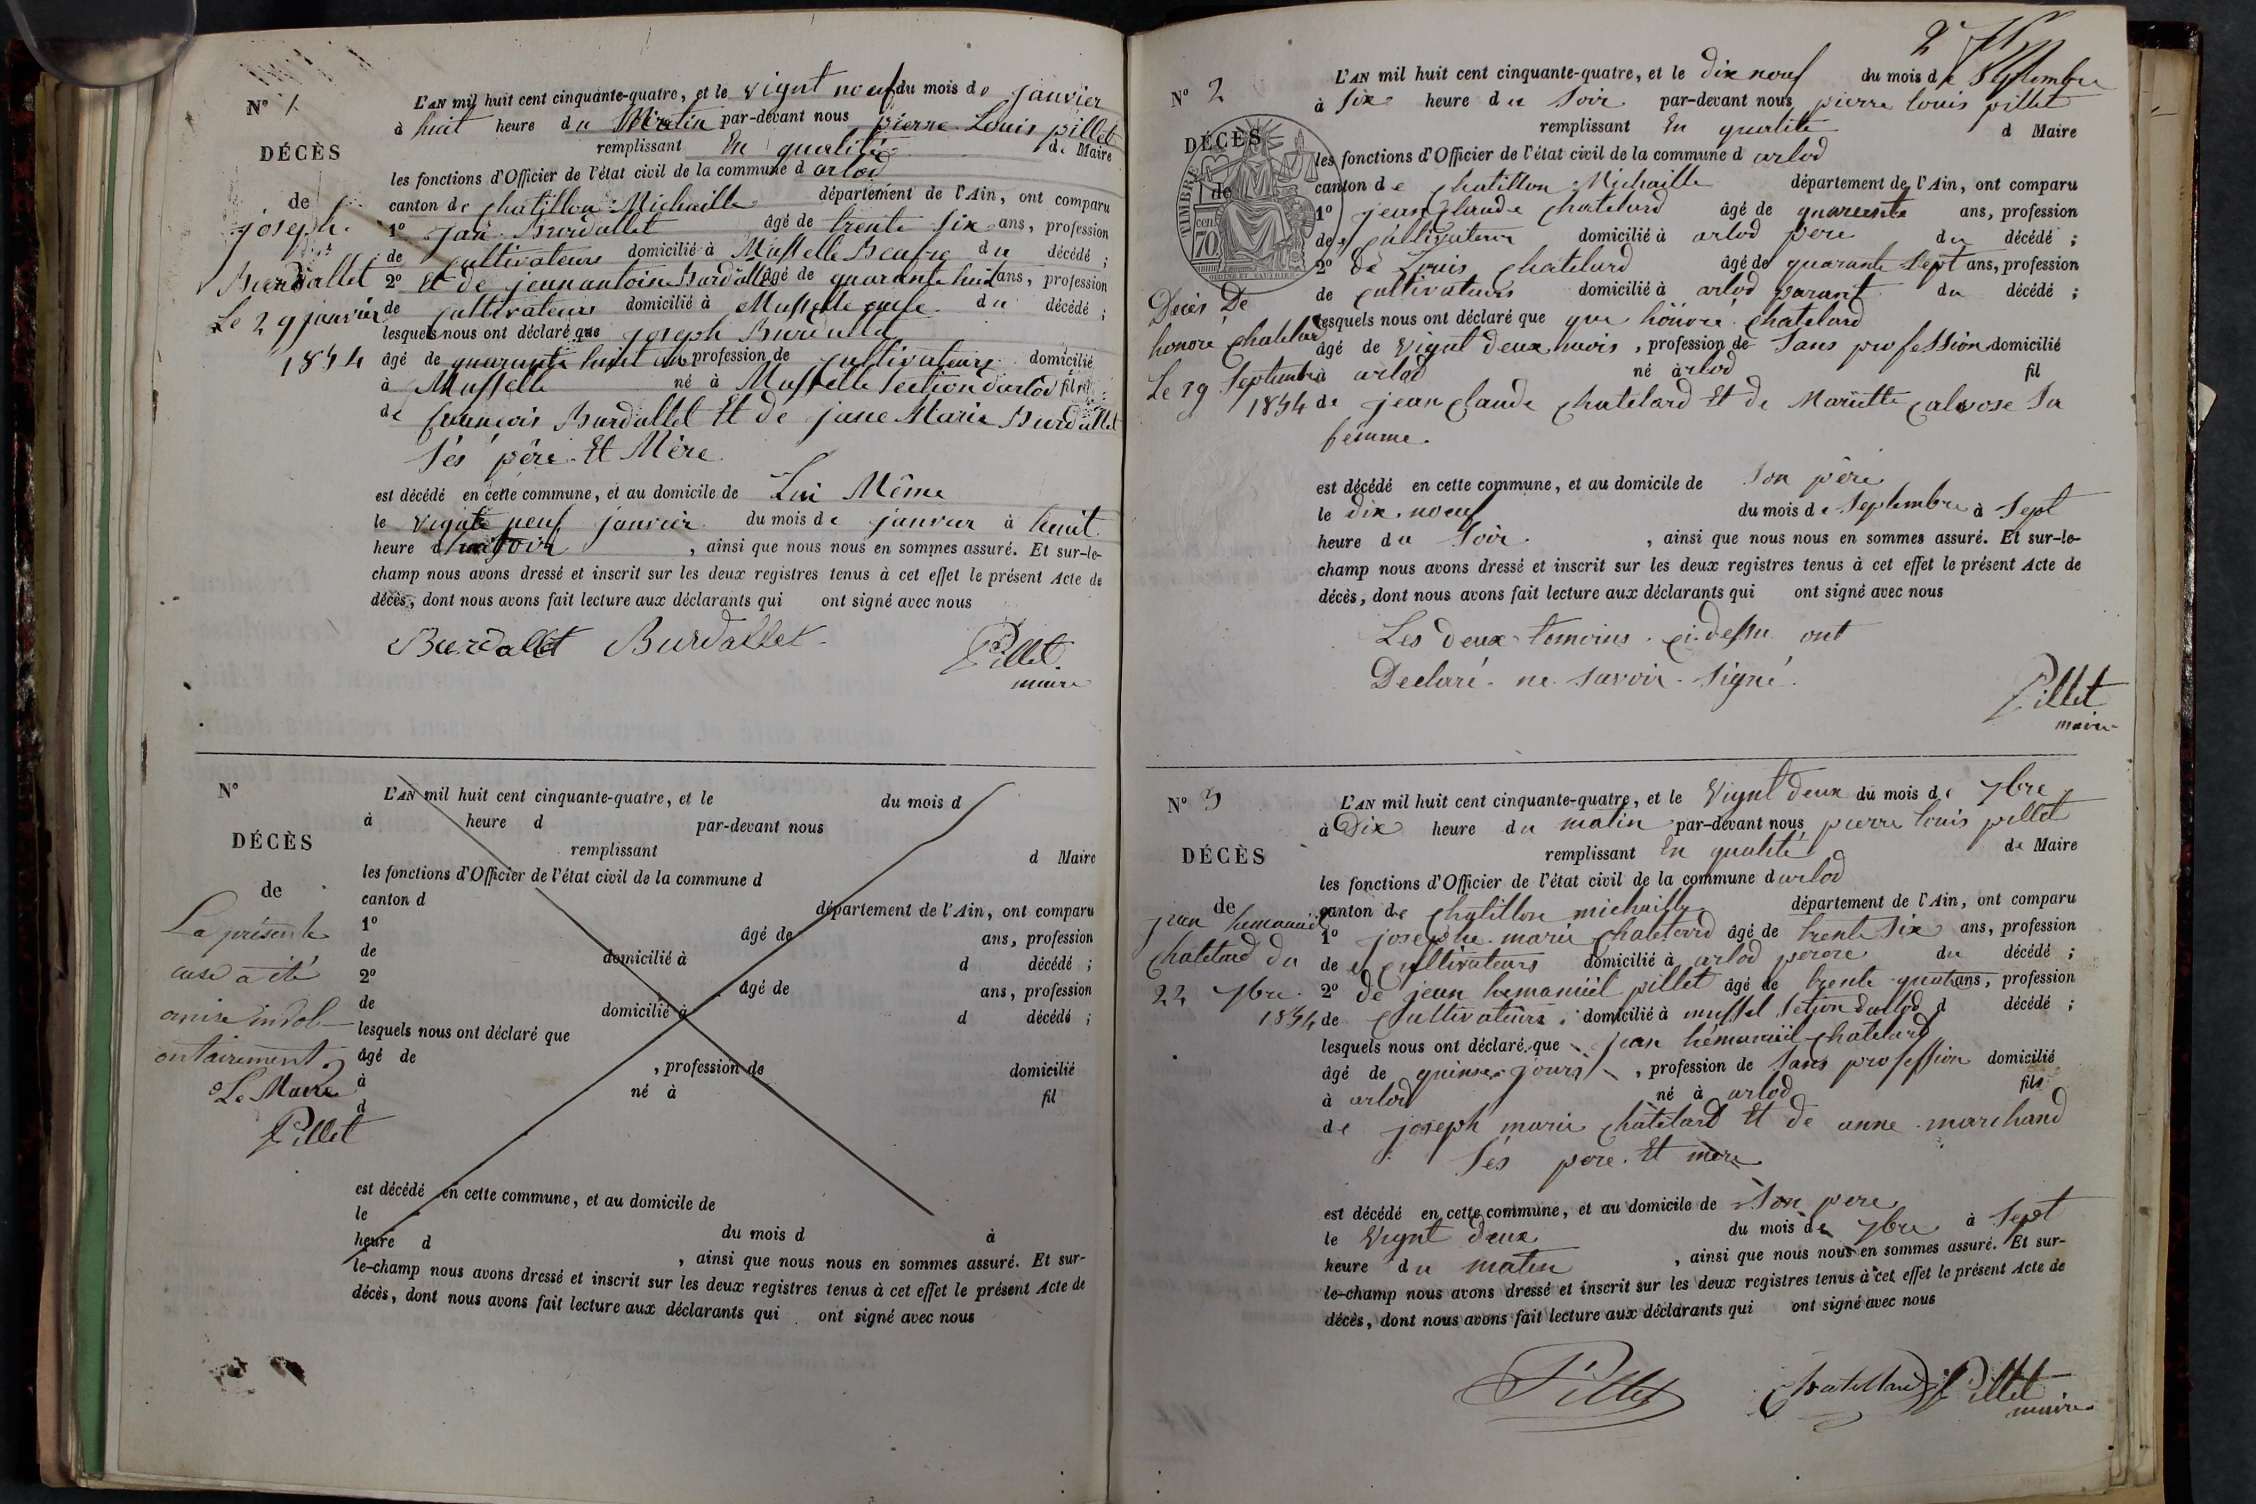 N° 1
DÉCÈS
de
joseph
Burdallet
Le 29 janvier
1854
L'AN mil huit cent cinquante-quatre, et le vignt neuf du mois de janvier
à huit heure du Matin par-devant nous pierre Louis pillet
remplissant En qualité de Maire
les fonctions d'Officier de l'état civil de la commune d arlod
canton de chatillon Michaille département de l'Ain, ont comparu
1° jan Burdallet âgé de trente six ans, profession
de cultivateurs domicilié à Musselle du décédé ;
2° Et de jean antoine Burdallet âgé de quarante huit ans, profession
de cultivateurs domicilié à Musselle du décédé ;
lesquels nous ont déclaré que joseph Burdallet
âgé de quarante huit ans profession de cultivateurs domicilié
à Musselle né à Musselle section darlod fils
de francois Burdallet Et de jane Marie Burdallet
sés père Et Mère
est décédé en cette commune, et au domicile de Lui Même
le vignte neuf janvier du mois de janvier à huit
heure d soir , ainsi que nous nous en sommes assuré. Et sur-le-
champ nous avons dressé et inscrit sur les deux registres tenus à cet effet le présent Acte de
décès, dont nous avons fait lecture aux déclarants qui ont signé avec nous
Burdallet Burdallet Pillet
maire
N°
DÉCÈS
de
La présente
case a été
omise invol-
ontairement
Le Maire
Pillet
L'AN mil huit cent cinquante-quatre, et le du mois d
à heure d par-devant nous
remplissant d Maire
les fonctions d'Officier de l'état civil de la commune d
canton d département de l'Ain, ont comparu
1° âgé de ans, profession
de domicilié à d décédé ;
2° âgé de ans, profession
de domicilié à d décédé ;
lesquels nous ont déclaré que
âgé de , profession de domicilié
à né à fil
d
est décédé en cette commune, et au domicile de
le du mois d à
heure d , ainsi que nous nous en sommes assuré. Et sur-
le-champ nous avons dressé et inscrit sur les deux registres tenus à cet effet le présent Acte de
décès, dont nous avons fait lecture aux déclarants qui ont signé avec nous
2
N° 2
DÉCÈS
de
TIMBRE
70
Décès De
honoré chatelard
Le 19 Septembre
1854
L'AN mil huit cent cinquante-quatre, et le dix nouf du mois de Septembre
à six heure du Soir par-devant nous pierre louis pillet
remplissant En qualité d Maire
les fonctions d'Officier de l'état civil de la commune d arlod
canton de chatillon Michaille département de l'Ain, ont comparu
1° jean Claude chatelard âgé de quarente ans, profession
de cultivateur domicilié à arlod pere du décédé ;
2° de Louis chatelard âgé de quarante sept ans, profession
de cultivateurs domicilié à arlod parant du décédé ;
lesquels nous ont déclaré que que honoré chatelard
âgé de vignt deux mois , profession de Sans profession domicilié
à arlod né à arlod fil
de jean Claude chatelard Et de Mariette calvose Sa
femme.
est décédé en cette commune, et au domicile de son père
le dix nouf du mois de Septembre à Sept
heure du Soir , ainsi que nous nous en sommes assuré. Et sur-le-
champ nous avons dressé et inscrit sur les deux registres tenus à cet effet le présent Acte de
décès, dont nous avons fait lecture aux déclarants qui ont signé avec nous
Les deux temoins ci-dessu ont
Declaré ne savoir signé.
Pillet
maire
N° 3
DÉCÈS
de
jean hemanuel
chatelard du
22 7bre
1854
L'AN mil huit cent cinquante-quatre, et le vignt deux du mois de 7bre
à Dix heure du matin par-devant nous pierre louis pillet
remplissant En qualité de Maire
les fonctions d'Officier de l'état civil de la commune d arlod
canton de chatillon michaille département de l'Ain, ont comparu
1° josephe marie chatelard âgé de trente six ans, profession
de cultivateurs domicilié à arlod perere du décédé ;
2° de jean hemanuel pillet âgé de trente quat ans, profession
de cultivateurs domicilié à mussel section d'arlod d décédé ;
lesquels nous ont déclaré que jean hémanuel chatelard
âgé de quinse jours , profession de Sans profession domicilié
à arlod né à arlod fils
de joseph marie chatelard Et de anne marchand
sés pere Et mère
est décédé en cette commune, et au domicile de Son pere
le vignt deux du mois de 7bre à Sept
heure du matin , ainsi que nous nous en sommes assuré. Et sur-
le-champ nous avons dressé et inscrit sur les deux registres tenus à cet effet le présent Acte de
décès, dont nous avons fait lecture aux déclarants qui ont signé avec nous
Pillet Chatellard Pillet
maire